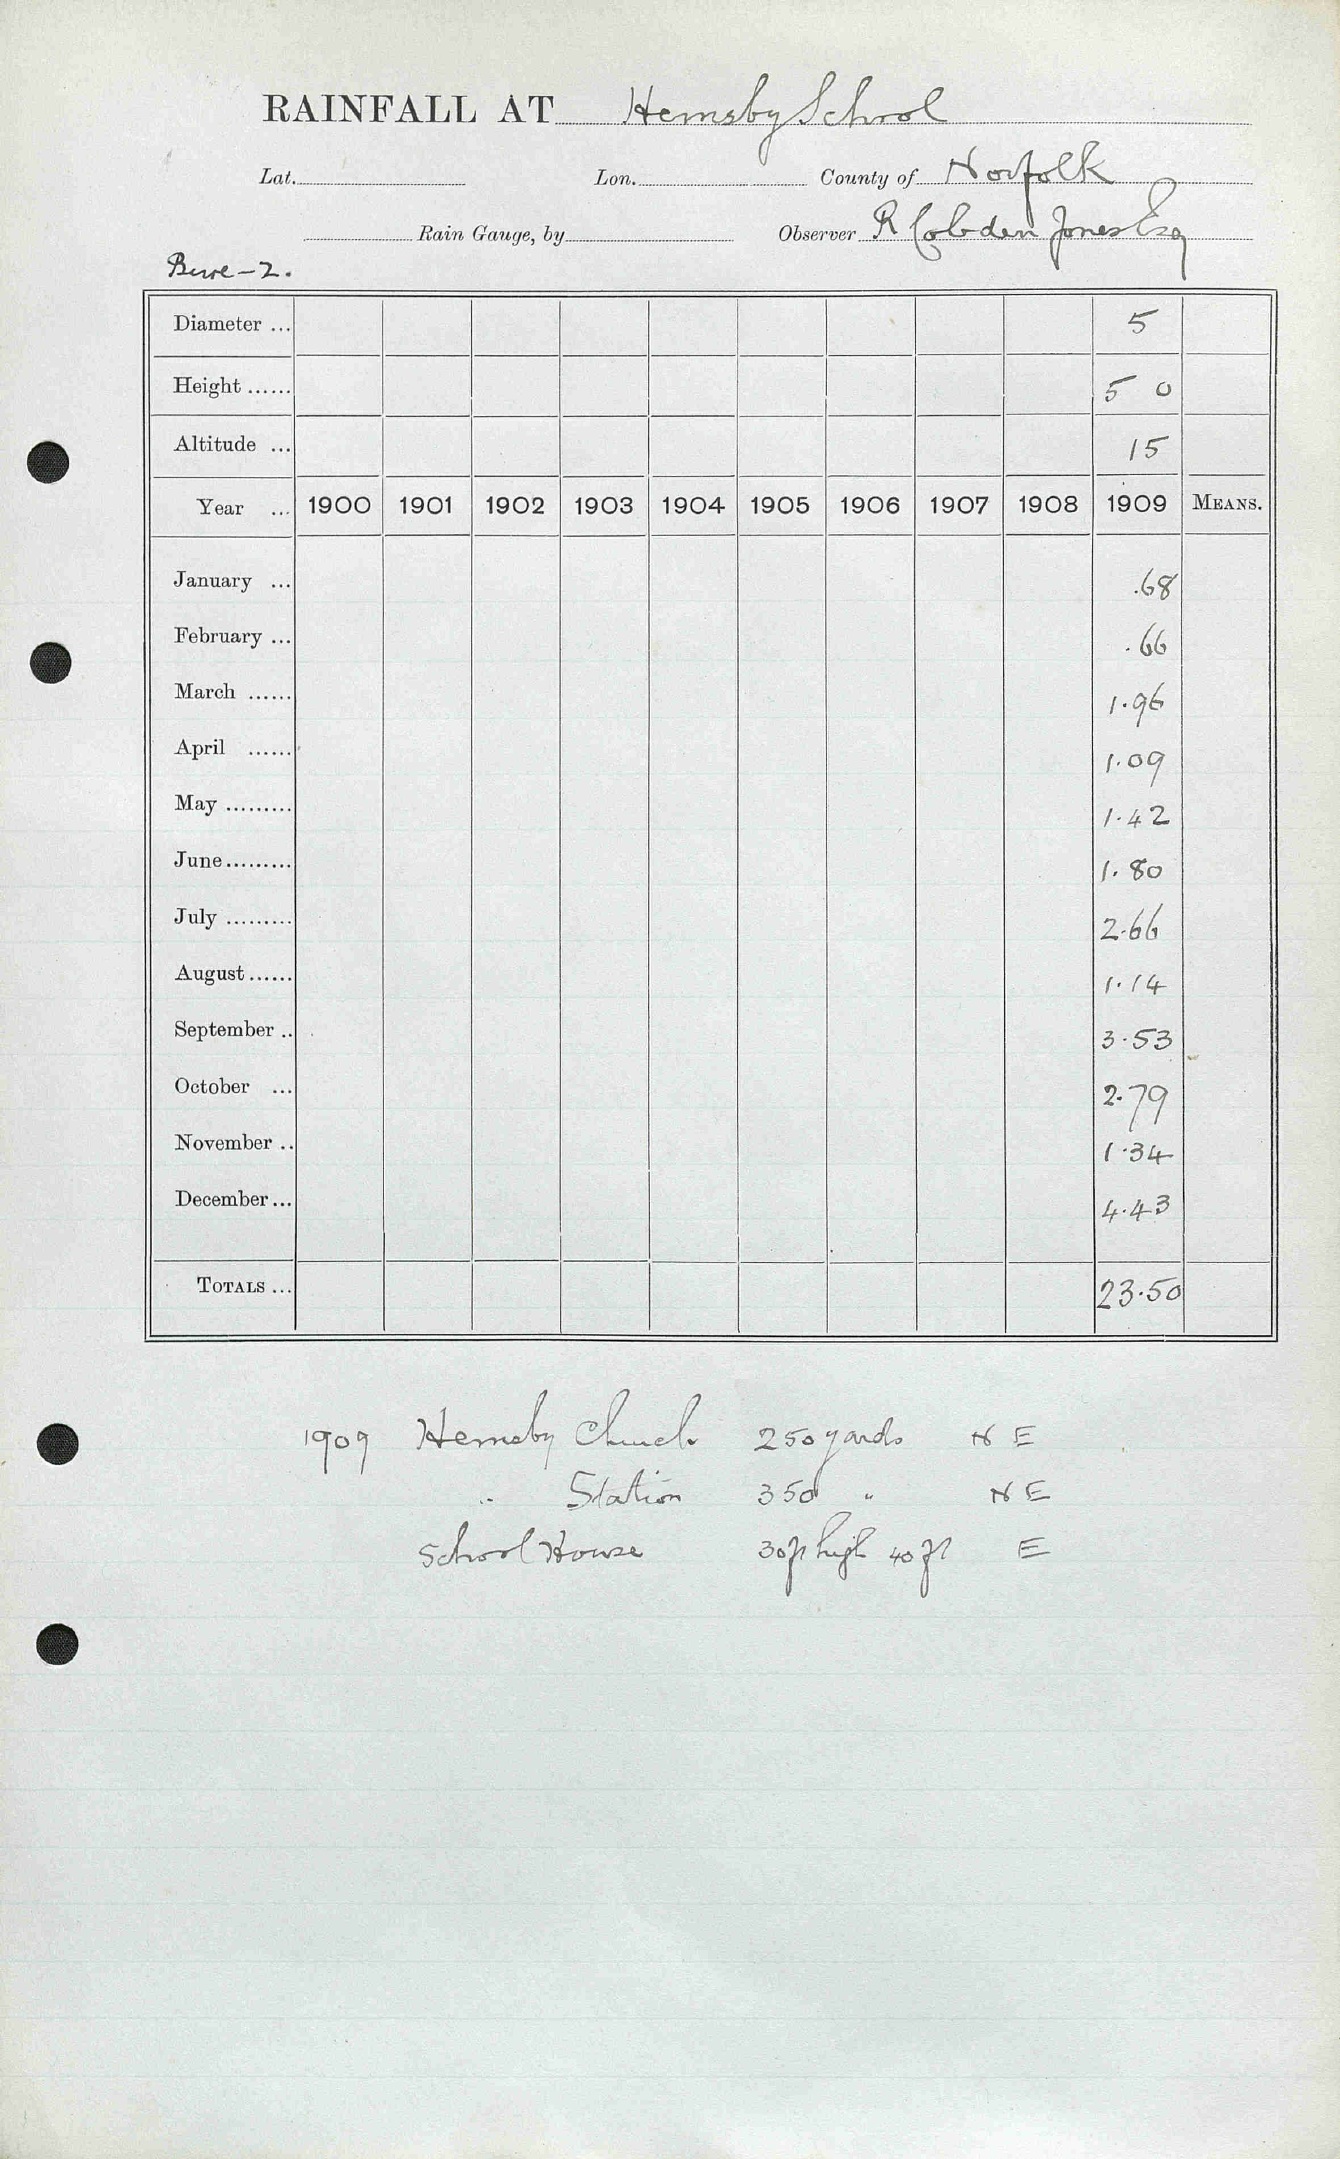 RAINFALL AT Hemsby School
Lat. Lon. County of Norfolk
Rain Gauge, by Observer R Cobden Jones Esq
Bure - 2.
Diameter ... 5
Height ...... 5 0
Altitude ... 15
Year ... 1900 1901 1902 1903 1904 1905 1906 1907 1908 1909 MEANS.
January ... .68
February ... .66
March ...... 1.96
April ...... 1.09
May ......... 1.42
June ......... 1.80
July ......... 2.66
August ...... 1.14
September .. 3.53
October ... 2.79
November .. 1.34
December ... 4.43
TOTALS ... 23.50
1909 Hemsby Church 250 yards N E
" Station 350 " N E
School House 30 ft high 40 ft E